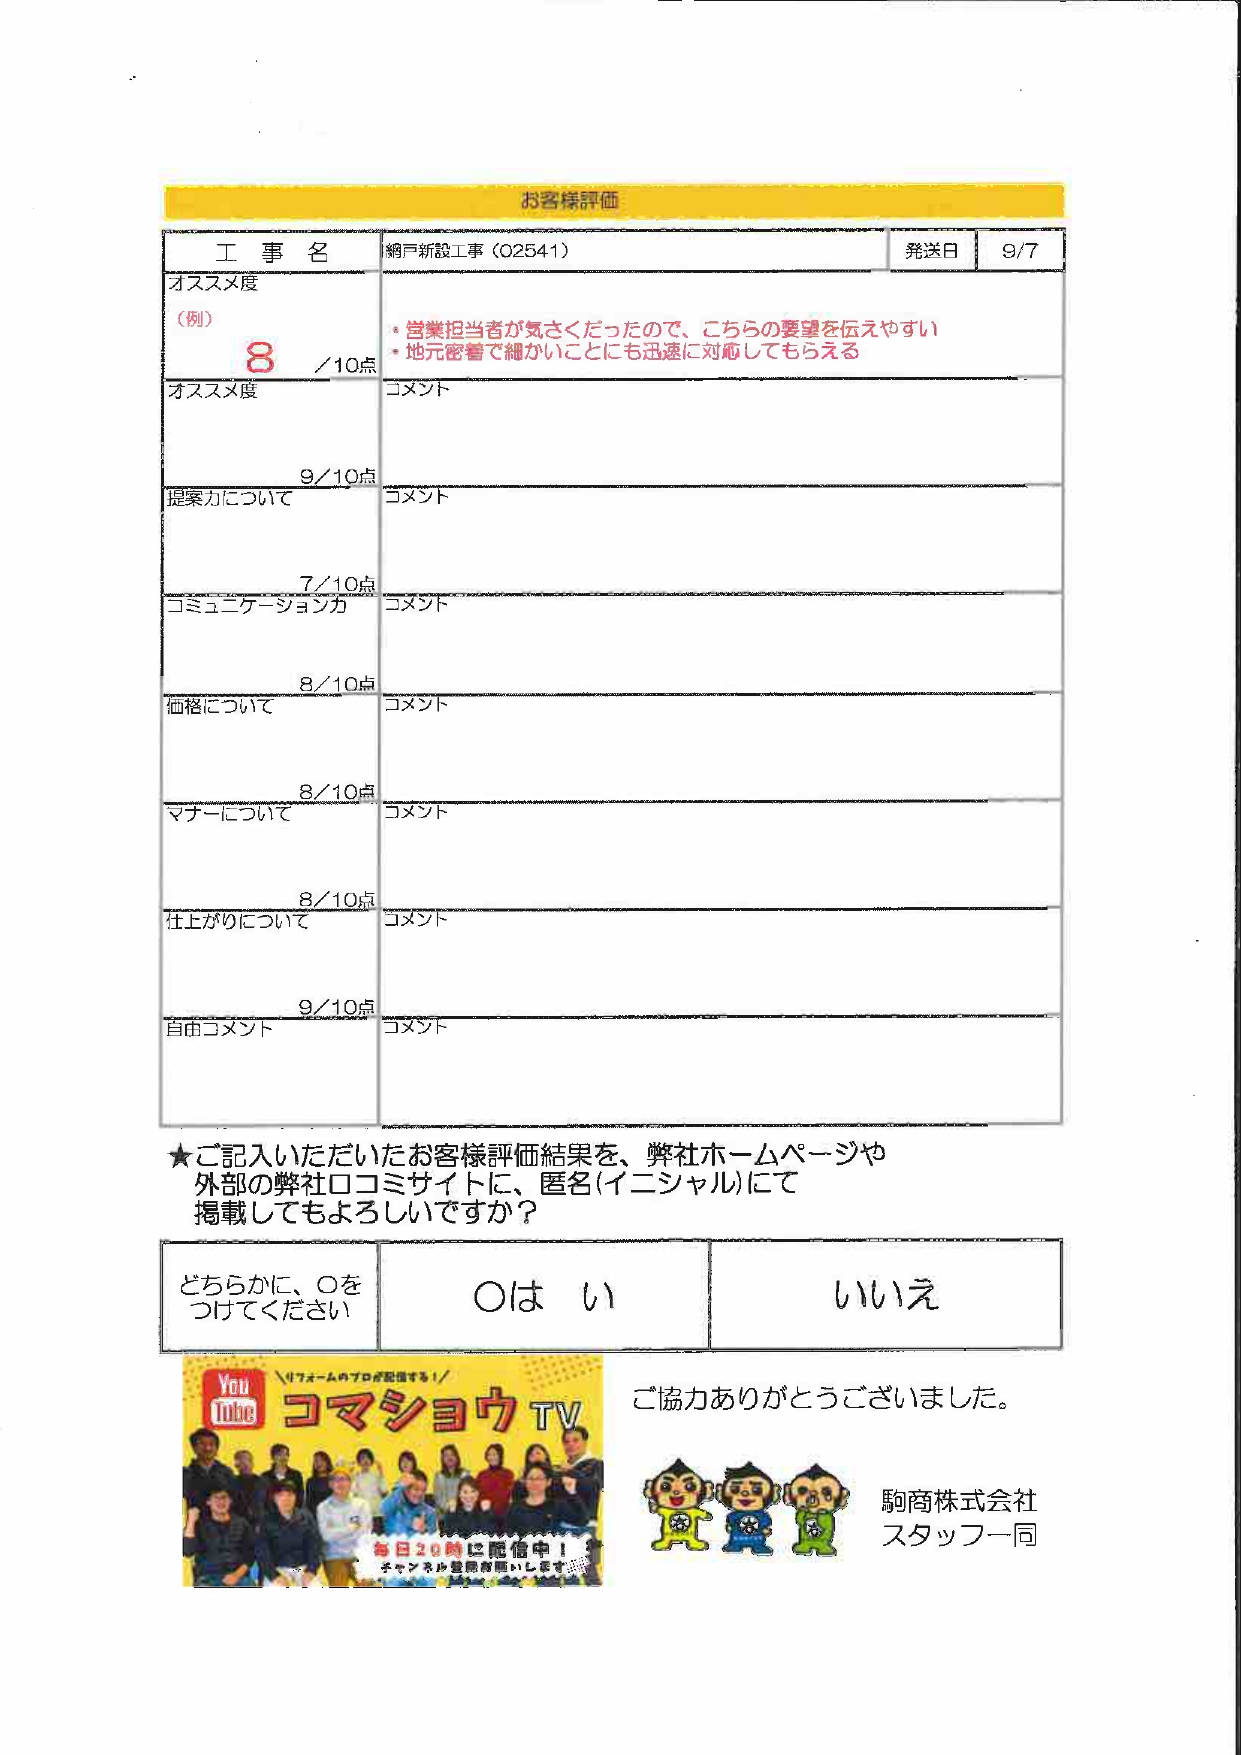 お客様評価
工 事 名 網戸新設工事（02541） 発送日 9/7
オススメ度
（例）
8 ／10点
・営業担当者が気さくだったので、こちらの要望を伝えやすい
・地元密着で細かいことにも迅速に対応してもらえる
オススメ度 コメント
9／10点
提案力について コメント
7／10点
コミュニケーション力 コメント
8／10点
価格について コメント
8／10点
マナーについて コメント
8／10点
仕上がりについて コメント
9／10点
自由コメント コメント
★ご記入いただいたお客様評価結果を、弊社ホームページや
外部の弊社口コミサイトに、匿名(イニシャル)にて
掲載してもよろしいですか？
どちらかに、〇を
つけてください
〇は い
いいえ
You
Tube
＼リフォームのプロが配信する！／
コマショウTV
毎日20時に配信中！
チャンネル登録お願いします
ご協力ありがとうございました。
駒商株式会社
スタッフ一同